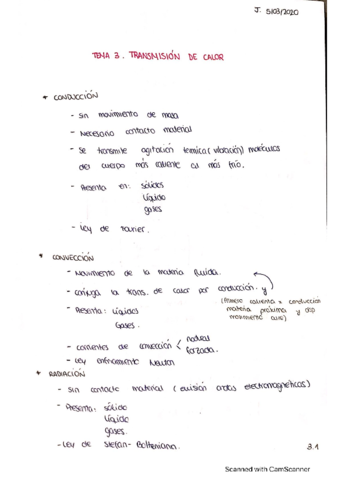 J. 5/03/2020
TEMA 3. TRANSMISIÓN DE CALOR
* CONDUCCIÓN
- Sin movimiento de masa
- Necesario contacto material
- Se transmite agitación térmica (vibración) moléculas
del cuerpo más caliente al más frío.
- Presenta en: sólidos
líquido
gases
- Ley de Fourier.
* CONVECCIÓN
- Movimiento de la materia fluida.
- Conjuga la trans. de calor por conducción. y
(Primero calienta x conducción
materia próxima y dsp
movimiento aire)
- Presenta: Líquidos
Gases.
- Corrientes de convección < natural
forzada.
- Ley enfriamiento Newton
* RADIACIÓN
- Sin contacto material (emisión ondas electromagnéticas)
- Presenta: sólido
líquido
gases.
- Ley de Stefan-Boltzmann.
3.1
Scanned with CamScanner